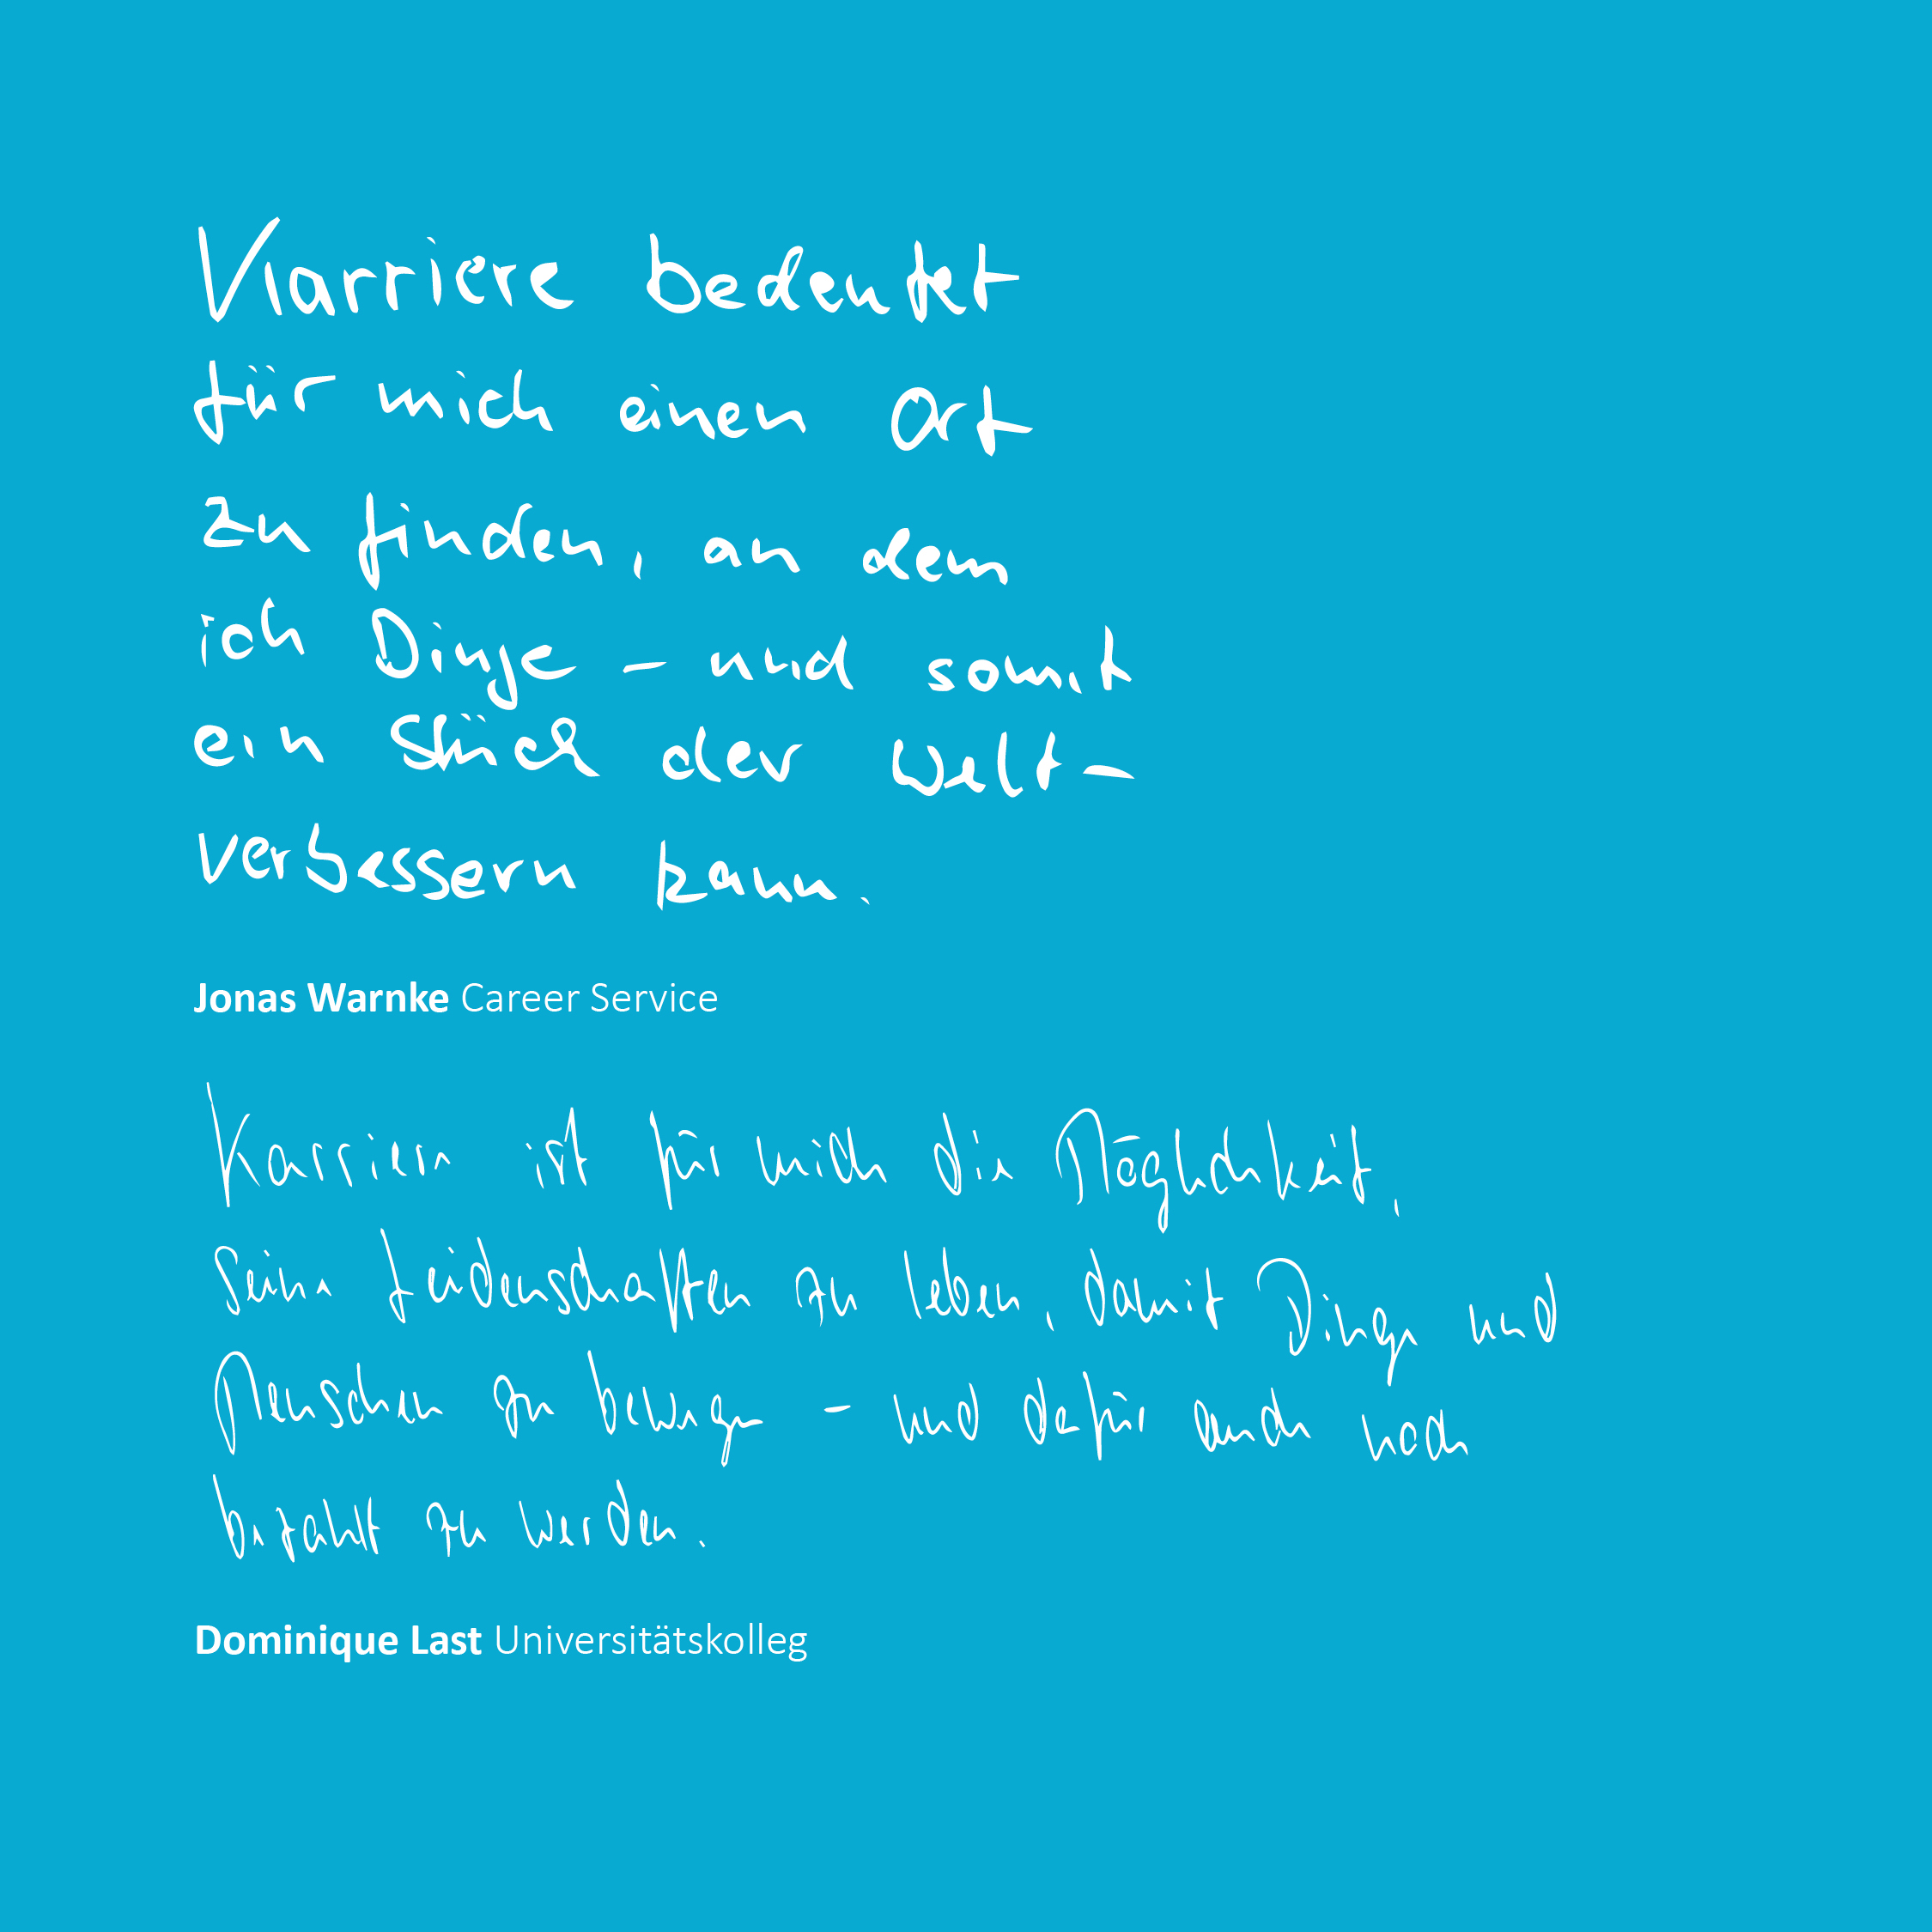 Karriere bedeutet
für mich einen Ort
zu finden, an dem
ich Dinge – und somit
ein Stück der Welt –
verbessern kann.
Jonas Warnke Career Service
Karriere ist für mich die Möglichkeit,
seine Leidenschaften zu leben, damit Dinge und
Menschen zu bewegen – und dafür auch noch
bezahlt zu werden.
Dominique Last Universitätskolleg